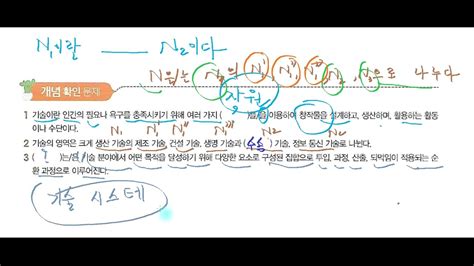 N₁이란 ______ N₂이다
N₁은는 N₂의 N₁' N₁'' N₁''' N₂ 등으로 나누다
개념 확인 문제
자원
1 기술이란 인간의 필요나 욕구를 충족시키기 위해 여러 가지 ( )을 이용하여 창작물을 설계하고, 생산하며, 활용하는 활동
이나 수단이다.
N₁ N₁' N₁'' N₁''' N₂ N₂
2 기술의 영역은 크게 생산 기술의 제조 기술, 건설 기술, 생명 기술과 (수송) 기술, 정보 통신 기술로 나뉜다.
3 ( ? )는 기술 분야에서 어떤 목적을 달성하기 위해 다양한 요소로 구성된 집합으로 투입, 과정, 산출, 되먹임이 적용되는 순
환 과정으로 이루어진다.
기술 시스테